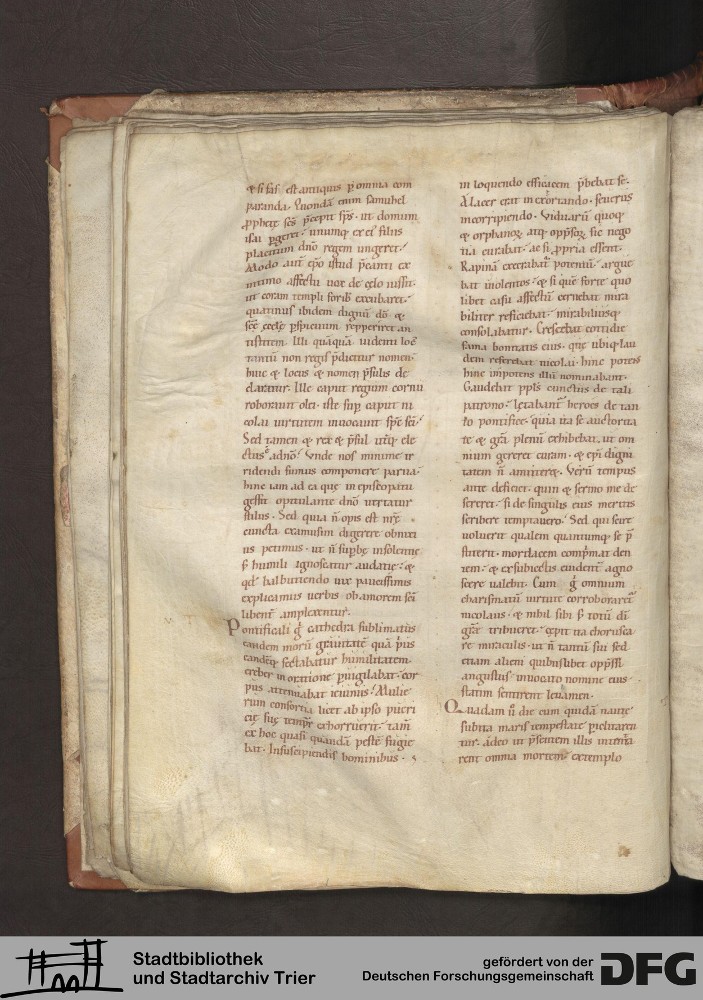 & si fas est antiquis p̄ omnia com
paranda. Quondā enim samuhel
ꝓphetę scs̄ p̄cepit sp̄s. ut domum
isai ꝑgeret. unumq; ex ei filiis
placitum dn̄o regem ungeret.
Modo aut̄ ep̄o istud p̄canti ex
intimo affectu uox de cęlo iussit.
ut coram templi forib; excubaret.
quatinus ibidem dignū dō &
scę ęcclę ꝑspicuum repperiret an
tistitem. Illi quāquā uidenti loc̄
tantū non regis p̄dicitur nomen.
huic & locus & nomen p̄sulis de
claratur. Ille caput regium cornu
roborauit olei. iste sup̄ caput ni
colai uirtutem inuocauit sp̄s sc̄i.
Sed tamen & rex & p̄sul utiq; ele
ctus adn̄o. Unde nos minime ir
ridendi sumus componere parua.
hinc iam ad ea quę in episcopatu
gessit opitulante dn̄o uertatur
stilus. Sed quia n̄ opis est nr̄ę
cuncta examusim digerere obnixi
us petimus. ut n̄ supb̄e insolentię
s; humili ignoscatur audatię. &
qd̄ balbutiendo uix pauessimus
explicamus uerbis ob amorem sc̄i
libent̄ amplexentur.
Pontificali g̊ cathedra sublimatus
eandem morū grauitatē quā p̄us
eandēq; sectabatur humilitatem.
creber in oratione ꝑuigilabat. cor
pus attenuabat ieiuniis. Mulie
rum consortia licet ab ipso pueri
cię suę tempr̄e exhorruerit. tam̄
ex hoc quasi quandā pestē fugie
bat. In suscipiendis hominibus.
in loquendo efficacem p̄bebat se.
Alacer erat in exortando. seuerus
in corripiendo. Viduarū quoq;
& orphanoꝝ atq; opp̄ssoꝝ sic nego
tia curabat. ac si ꝓpria essent.
Rapinā execrabat̄ potentū. argue
bat uiolentos. & si quē forte quo
libet casu afflictū cernebat mira
biliter reficiebat. mirabiliusq;
consolabatur. Crescebat cottidie
fama bonitatis eius. que ubiq; lau
dem referebat nicolai. hinc potens
hinc impotens illū nominabant.
Gaudebat ppl̄s cunctus de tali
patrono. lętabant̄ heroes de tan
to pontifice. quia ita se auctorita
te & gr̄a plenū exhibebat. ut om
nium gereret curam. & ep̄i digni
tatem n̄ amitteret. Verū tempus
ante deficiet. quin & sermo me de
sereret. si de singulis eius meritis
scribere temptauero. Sed qui scire
uoluerit qualem quantumq; se p̄
stiterit. mordacem comp̄mat den
tem. & ex subiectis euident̄ agno
scere ualebit. Cum g̊ omnium
charismatū uirtute corroboraret̄
nicolaus. & nihil sibi s; totū di
grę̄ tribueret. cępit ita chorusca
re miraculis. ut n̄ tantū sui sed
etiam alieni quibuslibet opp̄ssi
angustiis inuocato nomine eius
statim sentirent leuamen.
Quadam u̇ die cum quidā nautę
subita maris tempestate ꝑiclitaren
tur. adeo ut p̄sentem illis intenta
rent omnia mortem. extemplo
Stadtbibliothek
und Stadtarchiv Trier
gefördert von der
Deutschen Forschungsgemeinschaft
DFG